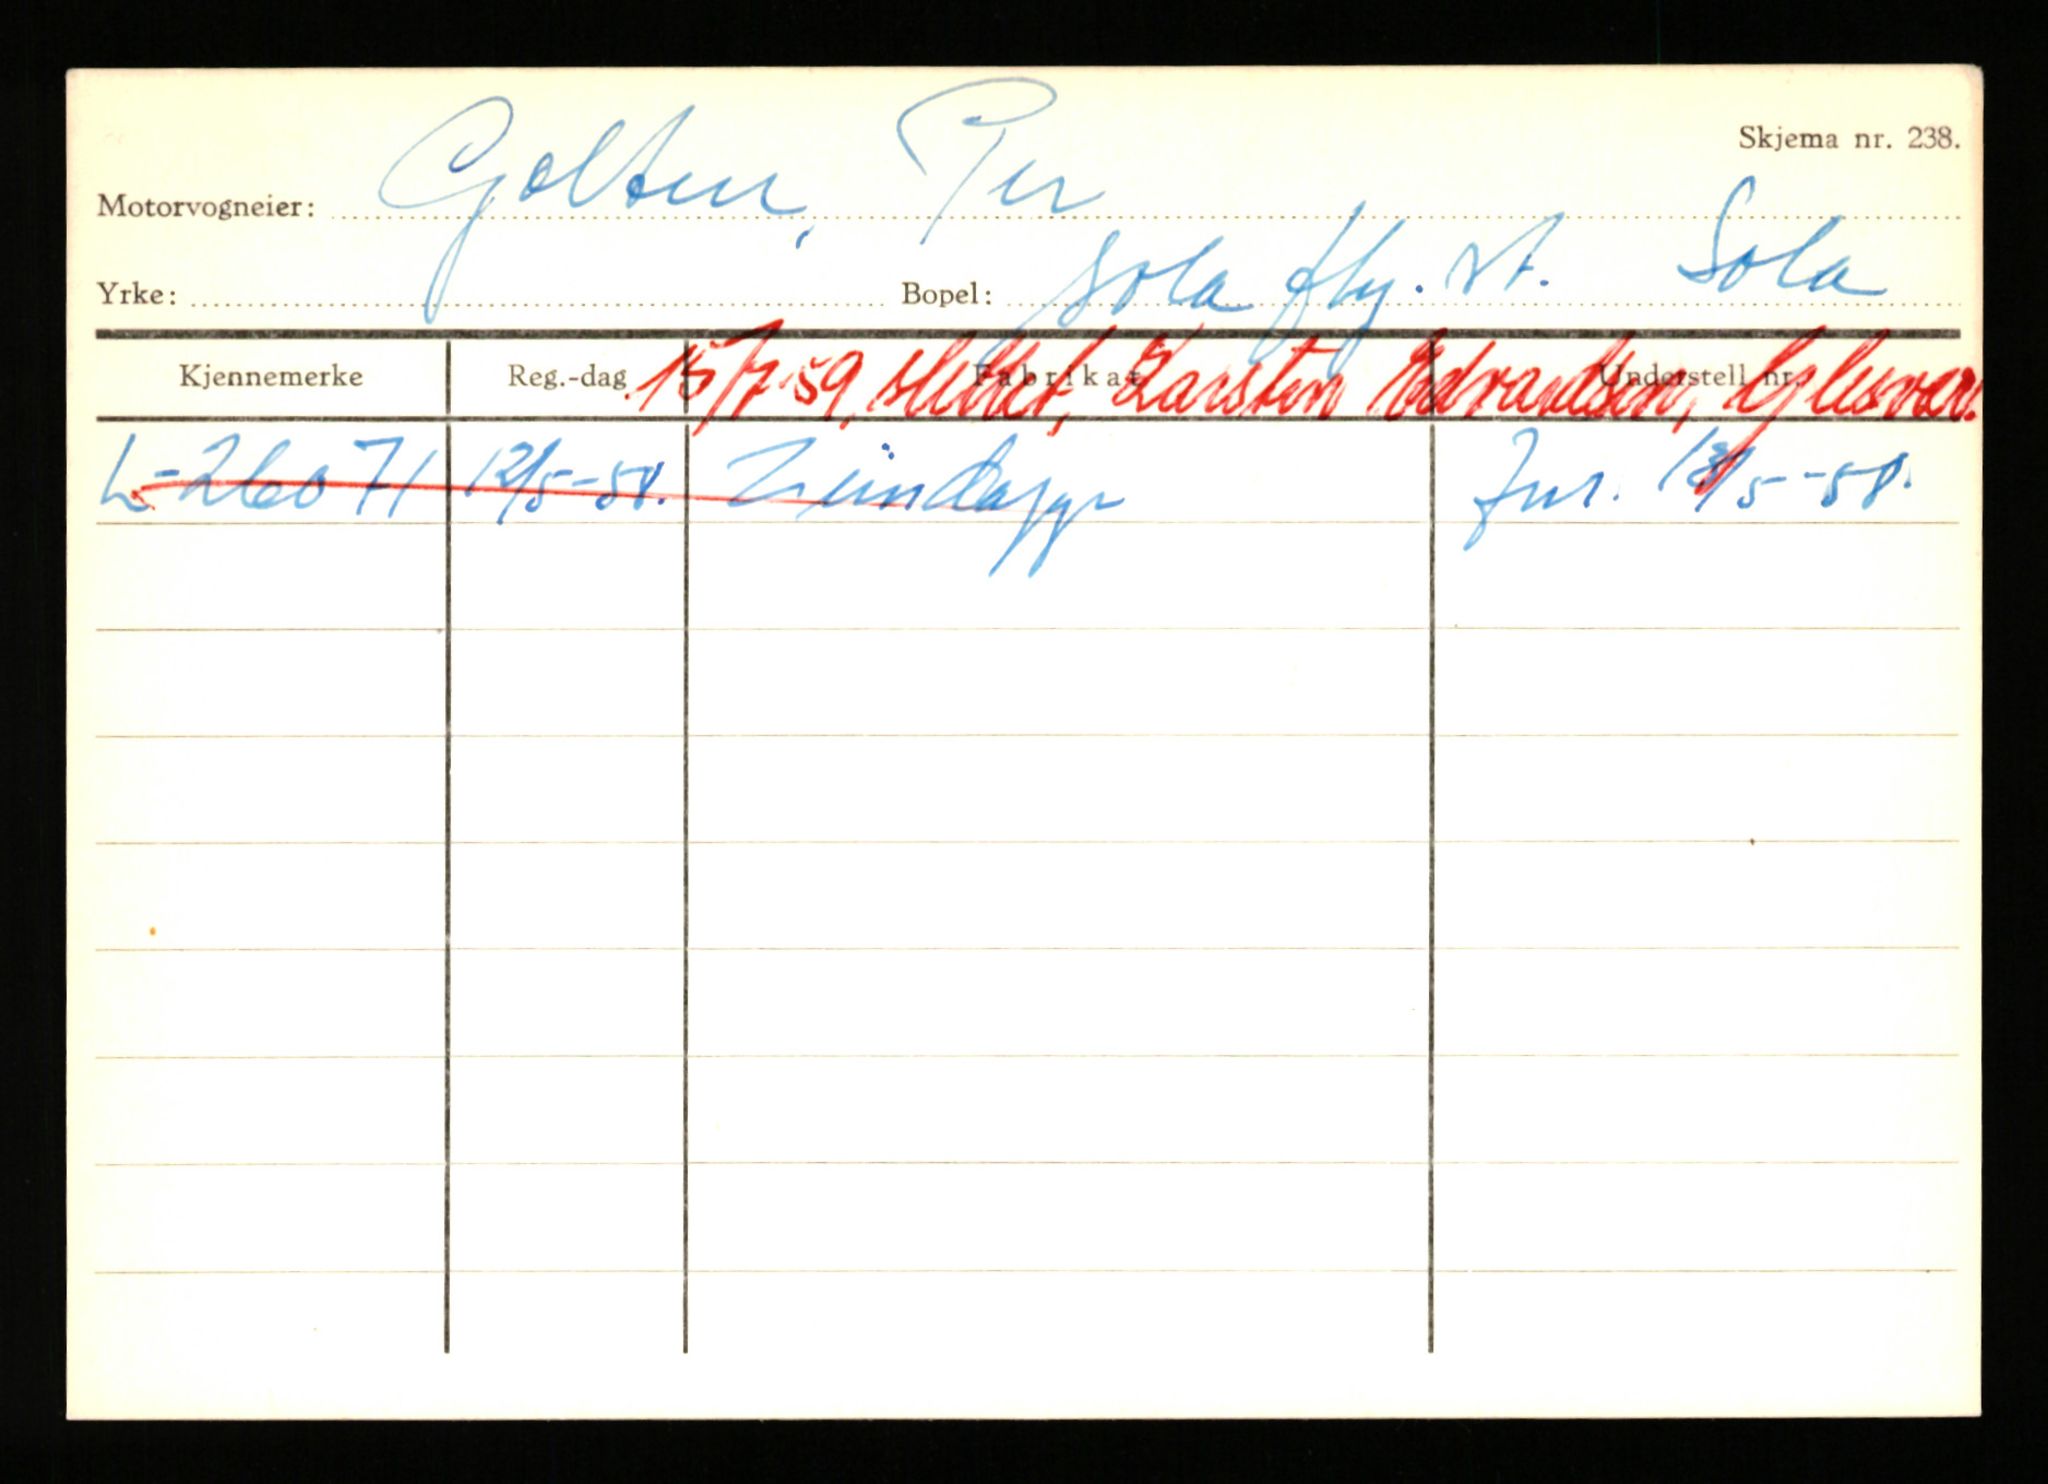 Skjema nr. 238.
Motorvogneier: Golten, Per
Yrke: Bopel: Sola fly. st. Sola
15/7-59, slettet, Karsten Edvardsen, Glesvær.
Kjennemerke Reg.-dag Fabrikat Understell nr.
L-26071 12/5-58. Zündapp 13/5-58.